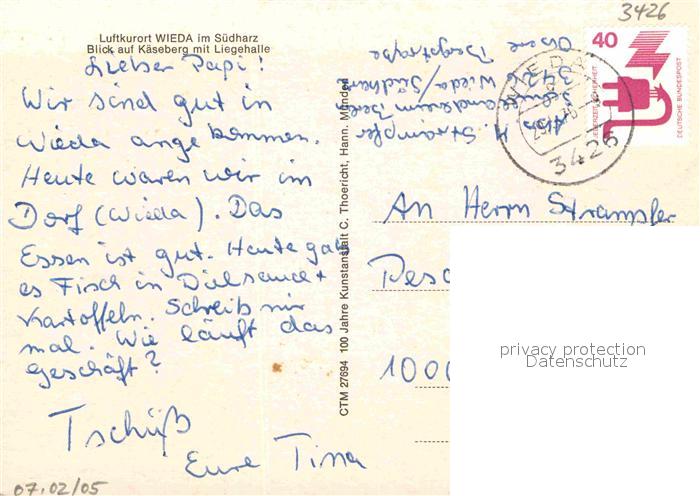 3426
Luftkurort WIEDA im Südharz
Blick auf Käseberg mit Liegehalle
Lieber Papi!
Wir sind gut in
Wieda angekommen.
Heute waren wir im
Dorf (Wieda). Das
Essen ist gut. Heute gab
es Fisch in Dillsauce +
Kartoffeln. Schreib mir
mal. Wie läuft das
Geschäft?
Tschüß
Eure Tina
07.02/05
CTM 27694 100 Jahre Kunstanstalt C. Thoericht, Hann. Münden
Abs. M. Strampfer
3426 Wieda/Südharz
Obere Bergstraße
WIEDA
3426
40
JEDERZEIT SICHERHEIT
DEUTSCHE BUNDESPOST
An Herrn Strampfer
1000
privacy protection
Datenschutz